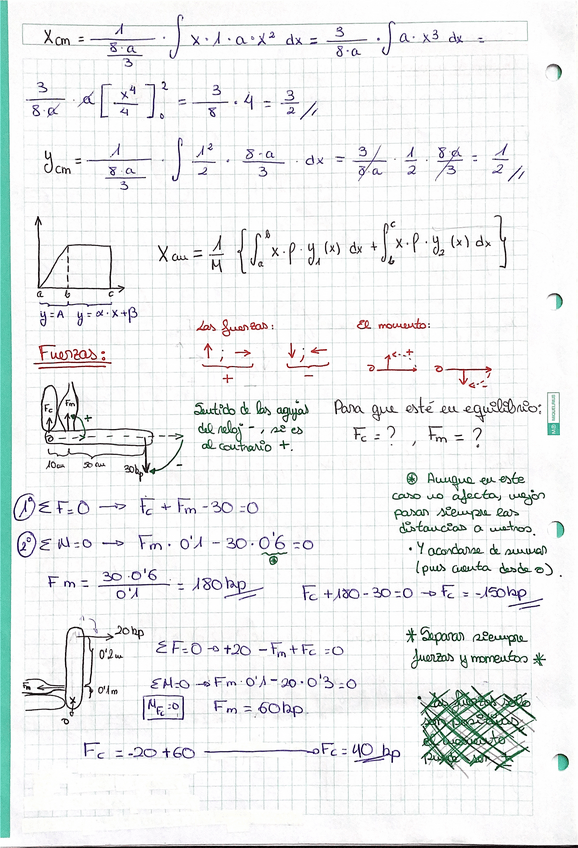 Xcm = 1 / (8·a/3) · ∫ x · 1 · a · x² dx = 3/(8·a) · ∫ a · x³ dx =
3/(8·a) · a [x⁴/4]²₀ = 3/8 · 4 = 3/2 //
ycm = 1 / (8·a/3) · ∫ 1²/2 · 8·a/3 · dx = 3/(8a) · 1/2 · 8a/3 = 1/2 //
Xcm = 1/M { ∫ₐᵇ x · ρ · y₁(x) dx + ∫ᵇᶜ x · ρ · y₂(x) dx }
a b c
y=A y=α·x+β
Las fuerzas:
El momento:
Fuerzas:
↑ ; → ↓ ; ←
+ −
0 + 0 -
Fc Fm +
0
10cm 50cm 30kp -
Sentido de las agujas
del reloj -, si es
al contrario +.
Para que esté en equilibrio:
Fc = ? , Fm = ?
1º ΣF=0 → Fc + Fm - 30 = 0
2º ΣM=0 → Fm · 0'1 - 30 · 0'6 = 0
Fm = 30·0'6 / 0'1 = 180 kp
Fc + 180 - 30 = 0 → Fc = -150 kp
⊛ Aunque en este
caso no afecta, mejor
pasar siempre las
distancias a metros.
• Y acordarse de sumar
(pues cuenta desde 0).
20 kp
0'2m
0'1m
Fm
0
ΣF=0 → +20 - Fm + Fc = 0
ΣM=0 → Fm · 0'1 - 20 · 0'3 = 0
MFc = 0 Fm = 60 kp.
Fc = -20 + 60 → Fc = 40 kp
* Separar siempre
fuerzas y momentos *